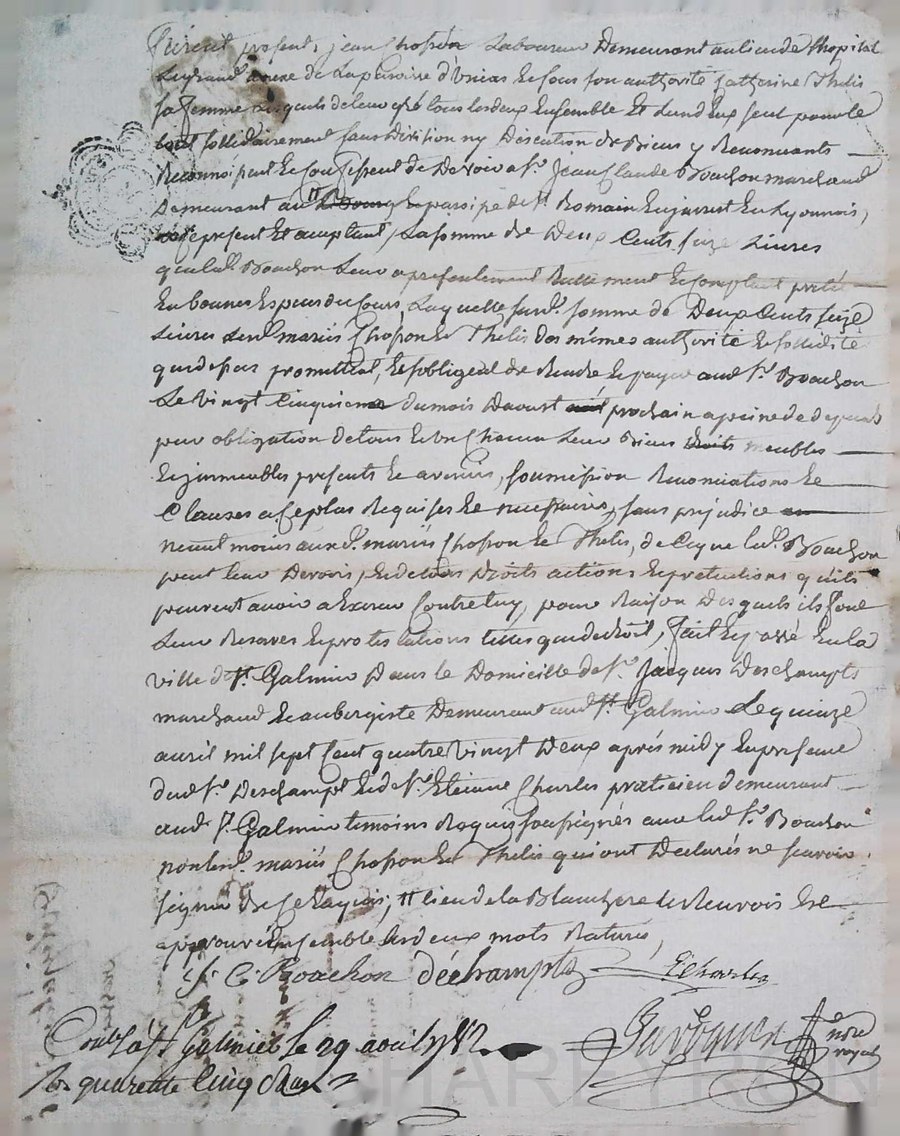 furent presents jean Chosson Laboureur Demeurant au lieu de lhopital
Legrand de Laparoisse d'Unias et sous son authorité Catherine Thelis
sa femme lesquels de leur gré tous lesdeux Ensemble Et Lund Eux seul pour le
tout sollidairement sans Division ny Discution de Biens y Renonceants
Reconnoissent Et Confessent de Devoir a Sr. Jean Claude Bouchon marchand
Demeurant au Bourg Et paroisse de St Romain En jarrest En Lyonnois,
present Et acceptant, La somme de Deux Cents seize Livres
que led. Bouchon Leur a presentement Reellement Et Comptant prêté
En bonnes Especes du Cours, Laquelle susd. somme de Deux Cents seize
Livres Lesd. mariés Chosson Et Thelis des mêmes authorité Et sollidité
que dessus promettent, Et s'obligent de Rendre Et payer aud Sr. Bouchon
Le Vingt Cinquieme du mois Daoust prochain a peine de depends
pour obligation de tous Et Un Chacun Leur Biens droits meubles
Et jmmeubles presents Et avenirs, soumission Renonciations Et
Clauses a Ce plus Requises Et necessaires, sans prejudice
neant moins auxd. mariés Chosson Et Thelis, de Ce que led. Bouchon
peut Leur Devoir, Et de tous Droits actions Et pretentions qu'ils
peuvent avoir a Exercer Contre luy, pour Raison Desquels ils font
Leur Reserves Et protestations telles que de droit, fait Et passé En la
ville de St. Galmier Dans le Domicille de Sr. Jacques Deschampts
marchand Et aubergiste Demeurant aud St. Galmier Le quinze
avril mil sept Cent quatre Vingt Deux aprés midy En presence
dud Sr. Deschampt Et de Sr. Etienne Charles praticien demeurant
aud St. Galmier temoins Requis soussignés avec led Sr. Bouchon
non lesd. mariés Chosson Et Thelis qui ont Declarés ne scavoir
signer De Ce Requis, # lieu de la Blanchere Le Renvois Est
approuvé Ensemble les deux mots Raturés,
J. C. Bouchon déchampts E Charles
Conllé á St Galmier Le 29 avril 1782
quarente Cinq
nore
royal
CHAREYRON